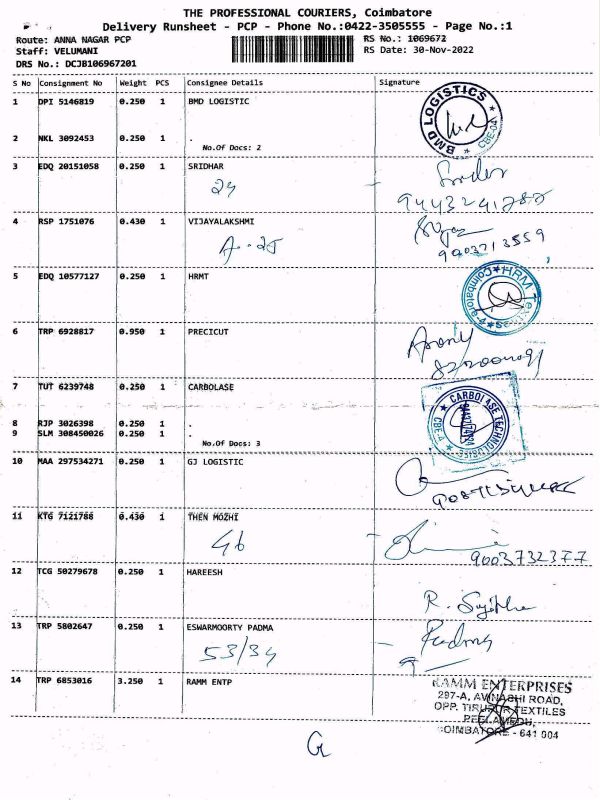 THE PROFESSIONAL COURIERS, Coimbatore
Delivery Runsheet - PCP - Phone No.:0422-3505555 - Page No.:1
Route: ANNA NAGAR PCP
RS No.: 1069672
Staff: VELUMANI
RS Date: 30-Nov-2022
DRS No.: DCJB106967201
S No Consignment No Weight PCS Consignee Details Signature
1 DPI 5146819 0.250 1 BMD LOGISTIC
BMD LOGISTICS CBE-04
2 NKL 3092453 0.250 1 .
No.Of Docs: 2
3 EDQ 20151058 0.250 1 SRIDHAR
24
4 RSP 1751076 0.430 1 VIJAYALAKSHMI
A-25
9003713559
5 EDQ 10577127 0.250 1 HRMT
HRM Coimbatore
6 TRP 6928817 0.950 1 PRECICUT
7 TUT 6239748 0.250 1 CARBOLASE
CARBOLASE TECHNOLOGIES
8 RJP 3026398 0.250 1 .
9 SLM 308450026 0.250 1 .
No.Of Docs: 3
10 MAA 297534271 0.250 1 GJ LOGISTIC
11 KTG 7121788 0.430 1 THEN MOZHI
46
9003732377
12 TCG 50279678 0.250 1 HAREESH
R. Sujitha
13 TRP 5802647 0.250 1 ESWARMOORTY PADMA
Padma
53/34
14 TRP 6853016 3.250 1 RAMM ENTP
RAMM ENTERPRISES
297-A, AVINASHI ROAD,
OPP. TIRUPUR TEXTILES
PEELAMEDU,
COIMBATORE - 641 004
G